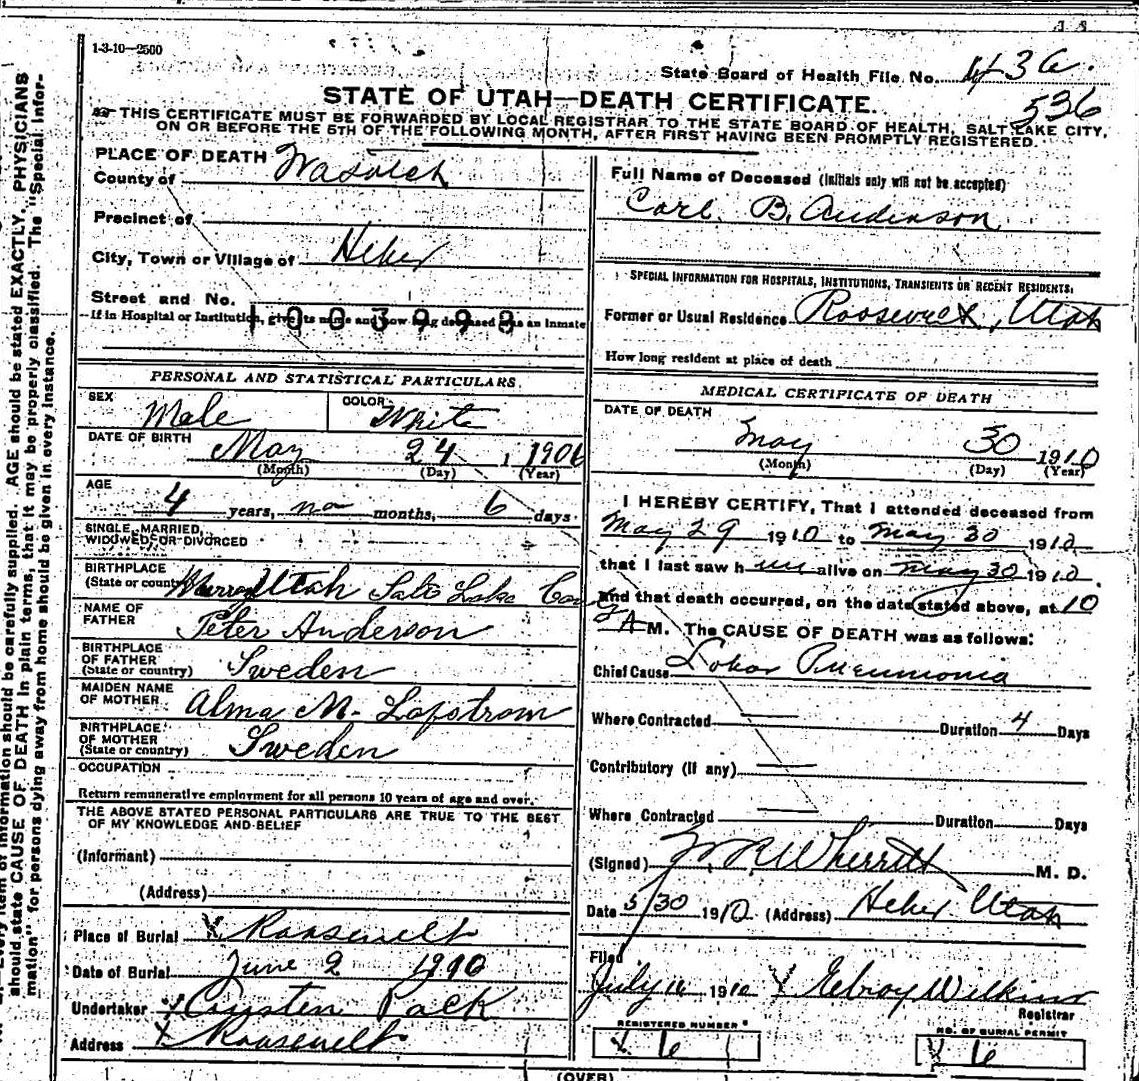 1-3-10—2500
State Board of Health File No. 436.
536
STATE OF UTAH—DEATH CERTIFICATE.
THIS CERTIFICATE MUST BE FORWARDED BY LOCAL REGISTRAR TO THE STATE BOARD OF HEALTH, SALT LAKE CITY,
ON OR BEFORE THE 5TH OF THE FOLLOWING MONTH, AFTER FIRST HAVING BEEN PROMPTLY REGISTERED.
PLACE OF DEATH
County of Wasatch
Precinct of
City, Town or Village of Heber
Street and No.
If in Hospital or Institution, give its name and how long deceased was an inmate
1003998
PERSONAL AND STATISTICAL PARTICULARS
SEX Male
COLOR White
DATE OF BIRTH May 24, 1906
(Month) (Day) (Year)
AGE
4 years, no months, 6 days
SINGLE, MARRIED,
WIDOWED, OR DIVORCED
BIRTHPLACE
(State or country) Murray Utah Salt Lake Co
NAME OF
FATHER Peter Anderson
BIRTHPLACE
OF FATHER
(State or country) Sweden
MAIDEN NAME
OF MOTHER Alma M. Lofstrom
BIRTHPLACE
OF MOTHER
(State or country) Sweden
OCCUPATION
Return remunerative employment for all persons 10 years of age and over.
THE ABOVE STATED PERSONAL PARTICULARS ARE TRUE TO THE BEST
OF MY KNOWLEDGE AND BELIEF
(Informant)
(Address)
Place of Burial X Roosevelt
Date of Burial June 2 1910
Undertaker X Pack
Address X Roosevelt
Full Name of Deceased (Initials only will not be accepted)
Carl. B. Andinson
SPECIAL INFORMATION FOR HOSPITALS, INSTITUTIONS, TRANSIENTS OR RECENT RESIDENTS.
Former or Usual Residence Roosevelt, Utah
How long resident at place of death
MEDICAL CERTIFICATE OF DEATH
DATE OF DEATH
May 30 1910
(Month) (Day) (Year)
I HEREBY CERTIFY, That I attended deceased from
May 29 1910 to May 30 1910
that I last saw him alive on May 30 1910.
and that death occurred, on the date stated above, at 10
A M. The CAUSE OF DEATH was as follows:
Chief Cause Lobar Pneumonia
Where Contracted Duration 4 Days
Contributory (If any)
Where Contracted Duration Days
(Signed) W R Wherritt M. D.
Date 5/30 1910 (Address) Heber Utah
Filed
July 1910 X Elroy Wilkins
Registrar
REGISTERED NUMBER
X 6
NO. OF BURIAL PERMIT
X 6
(OVER)
Every item of information should be carefully supplied. AGE should be stated EXACTLY. PHYSICIANS
should state CAUSE OF DEATH in plain terms, that it may be properly classified. The "Special Infor-
mation" for persons dying away from home should be given in every instance.